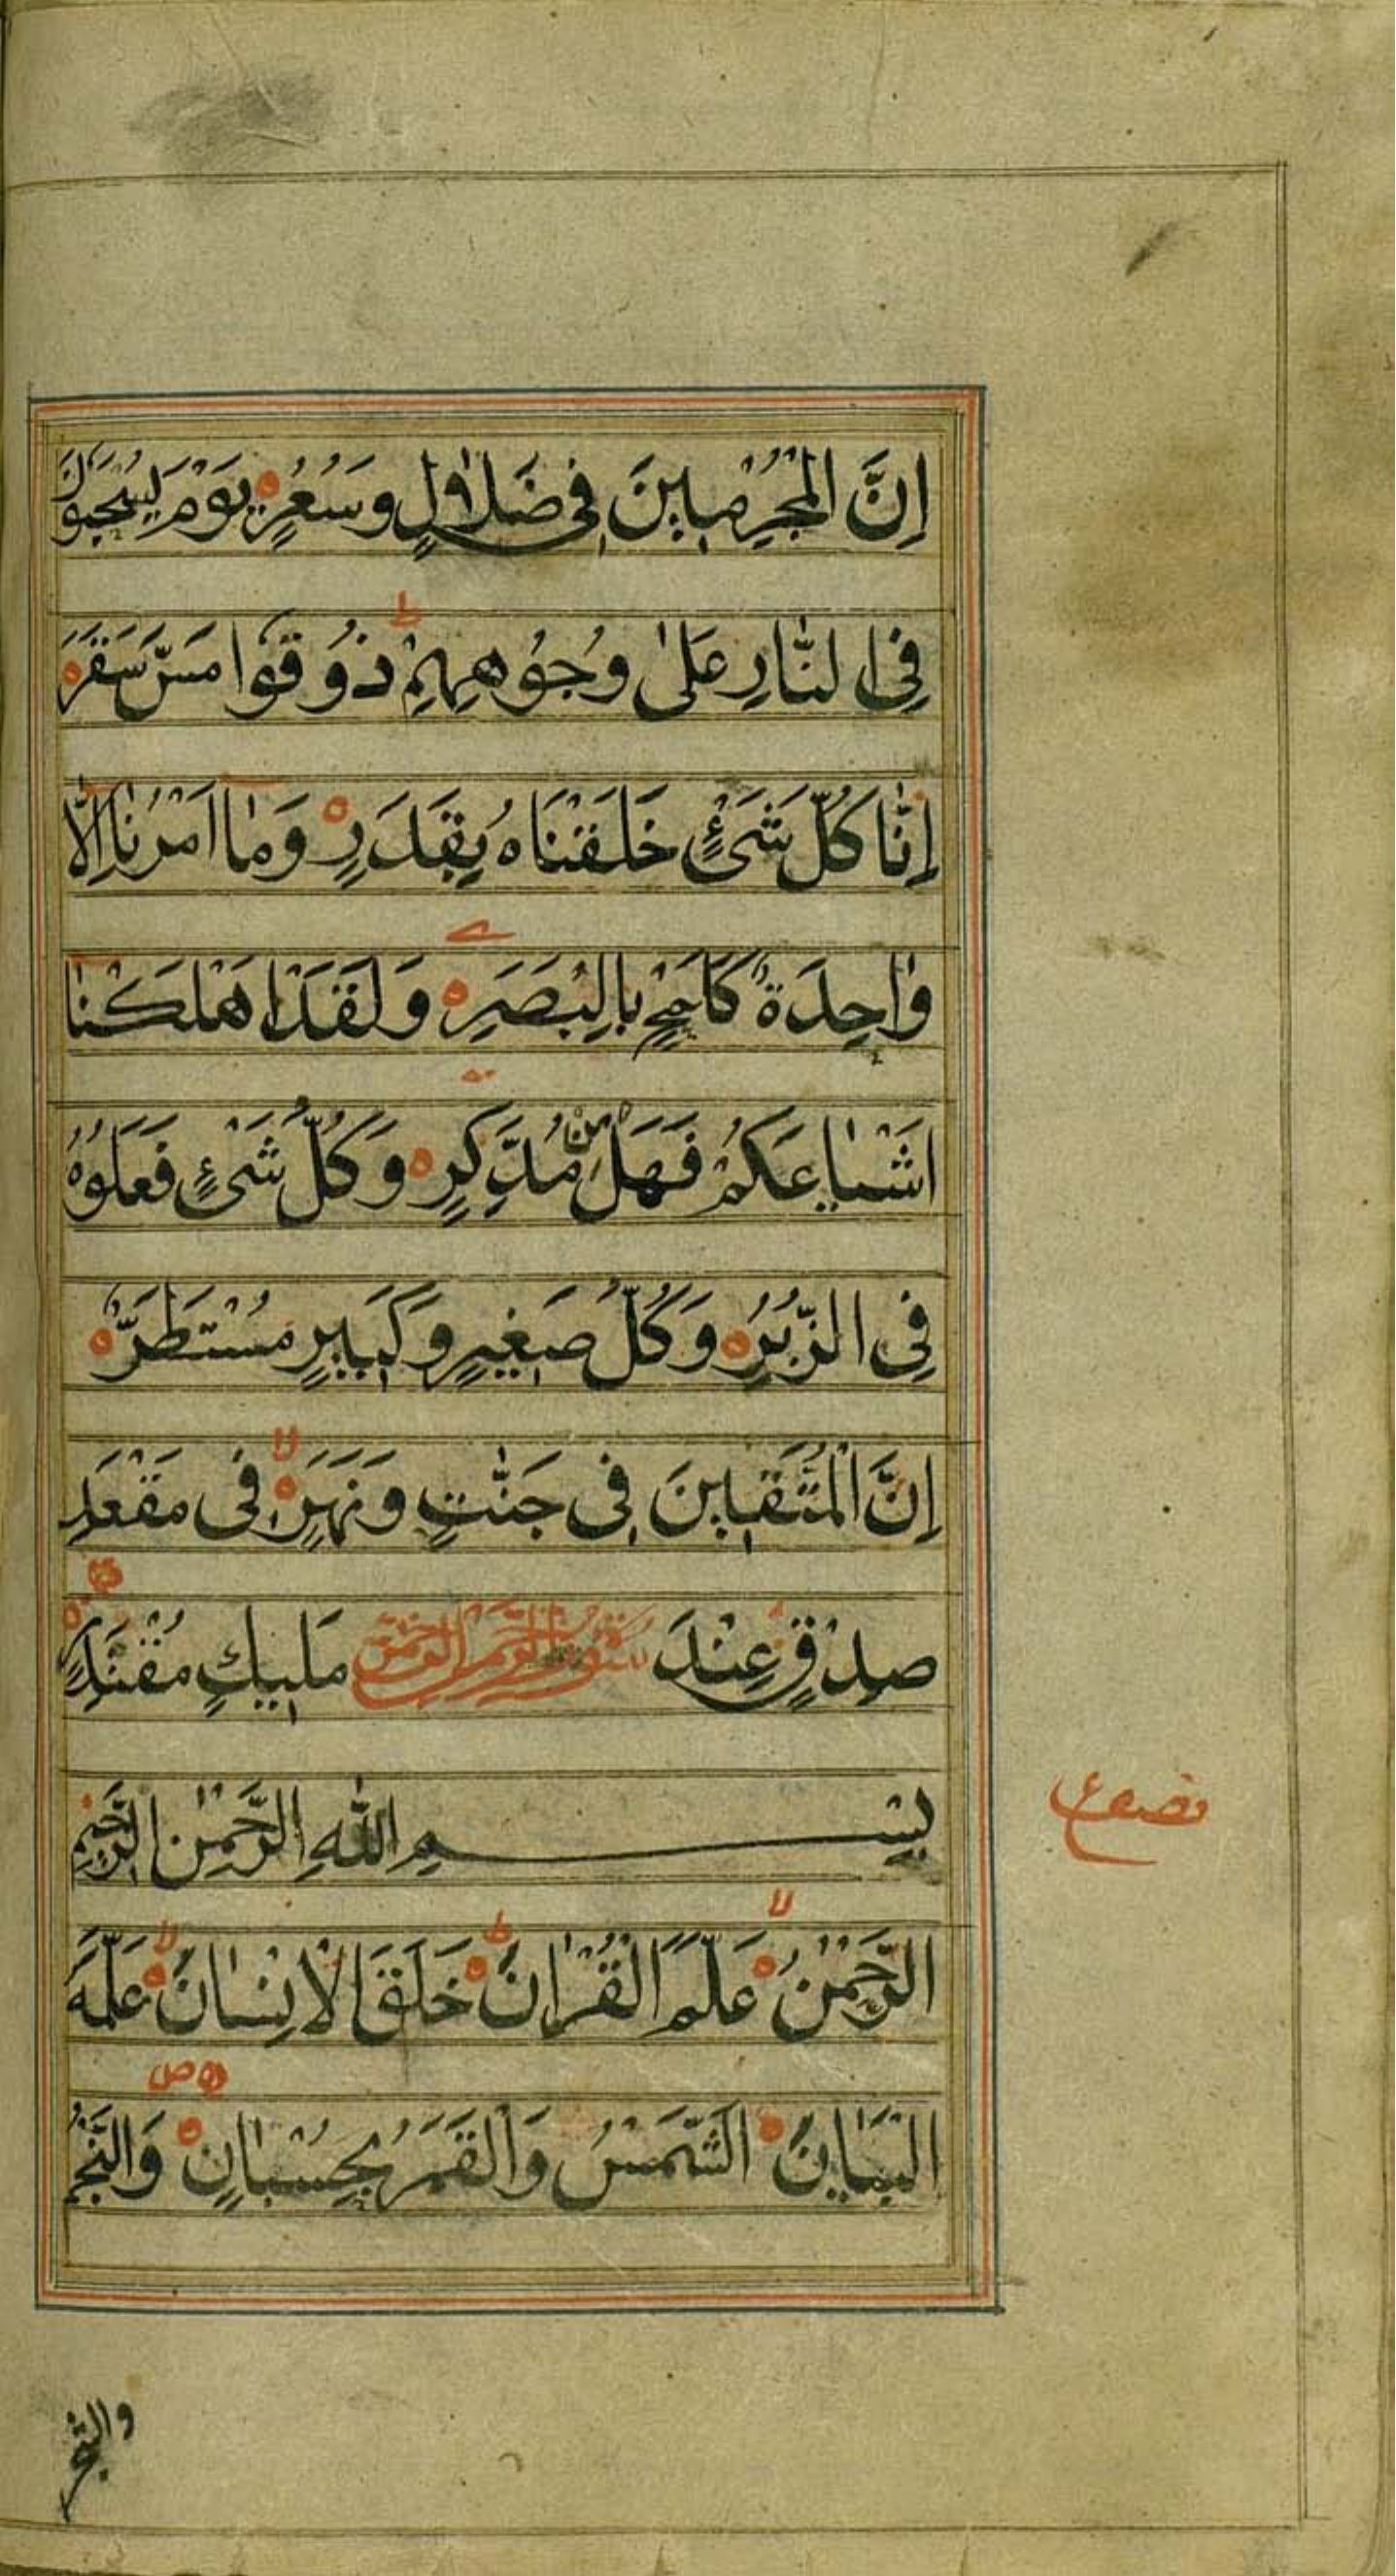 اِنَّ الْمُجْرِمِينَ فِى ضَلٰلٍ وَسُعُرٍ يَوْمَ يُسْحَبُوْنَ
فِى النَّارِ عَلٰى وُجُوْهِهِمْ ط ذُوْقُوْا مَسَّ سَقَرَ
اِنَّا كُلَّ شَىْءٍ خَلَقْنَاهُ بِقَدَرٍ وَمٰا اَمْرُنٰا اِلَّا
وٰاحِدَةٌ كَلَمْحٍ بِالْبَصَرِ وَلَقَدْ اَهْلَكْنٰا
اَشْيٰاعَكُمْ فَهَلْ مِنْ مُدَّكِرٍ وَكُلُّ شَىْءٍ فَعَلُوْهُ
فِى الزُّبُرِ وَكُلُّ صَغِيرٍ وَكَبِيرٍ مُسْتَطَرٌ
اِنَّ الْمُتَّقِينَ فِى جَنّٰتٍ وَنَهَرٍ لا فِى مَقْعَدِ
صِدْقٍ عِنْدَ مَلِيكٍ مُقْتَدِرٍ
بِسْمِ اللّٰهِ الرَّحْمٰنِ الرَّحِيمِ
اَلرَّحْمٰنُ لا عَلَّمَ الْقُرْاٰنَ ط خَلَقَ الْاِنْسٰانَ لا عَلَّمَهُ
الْبَيٰانَ اَلشَّمْسُ وَالْقَمَرُ بِحُسْبٰانٍ ص وَالنَّجْمُ
والشجر